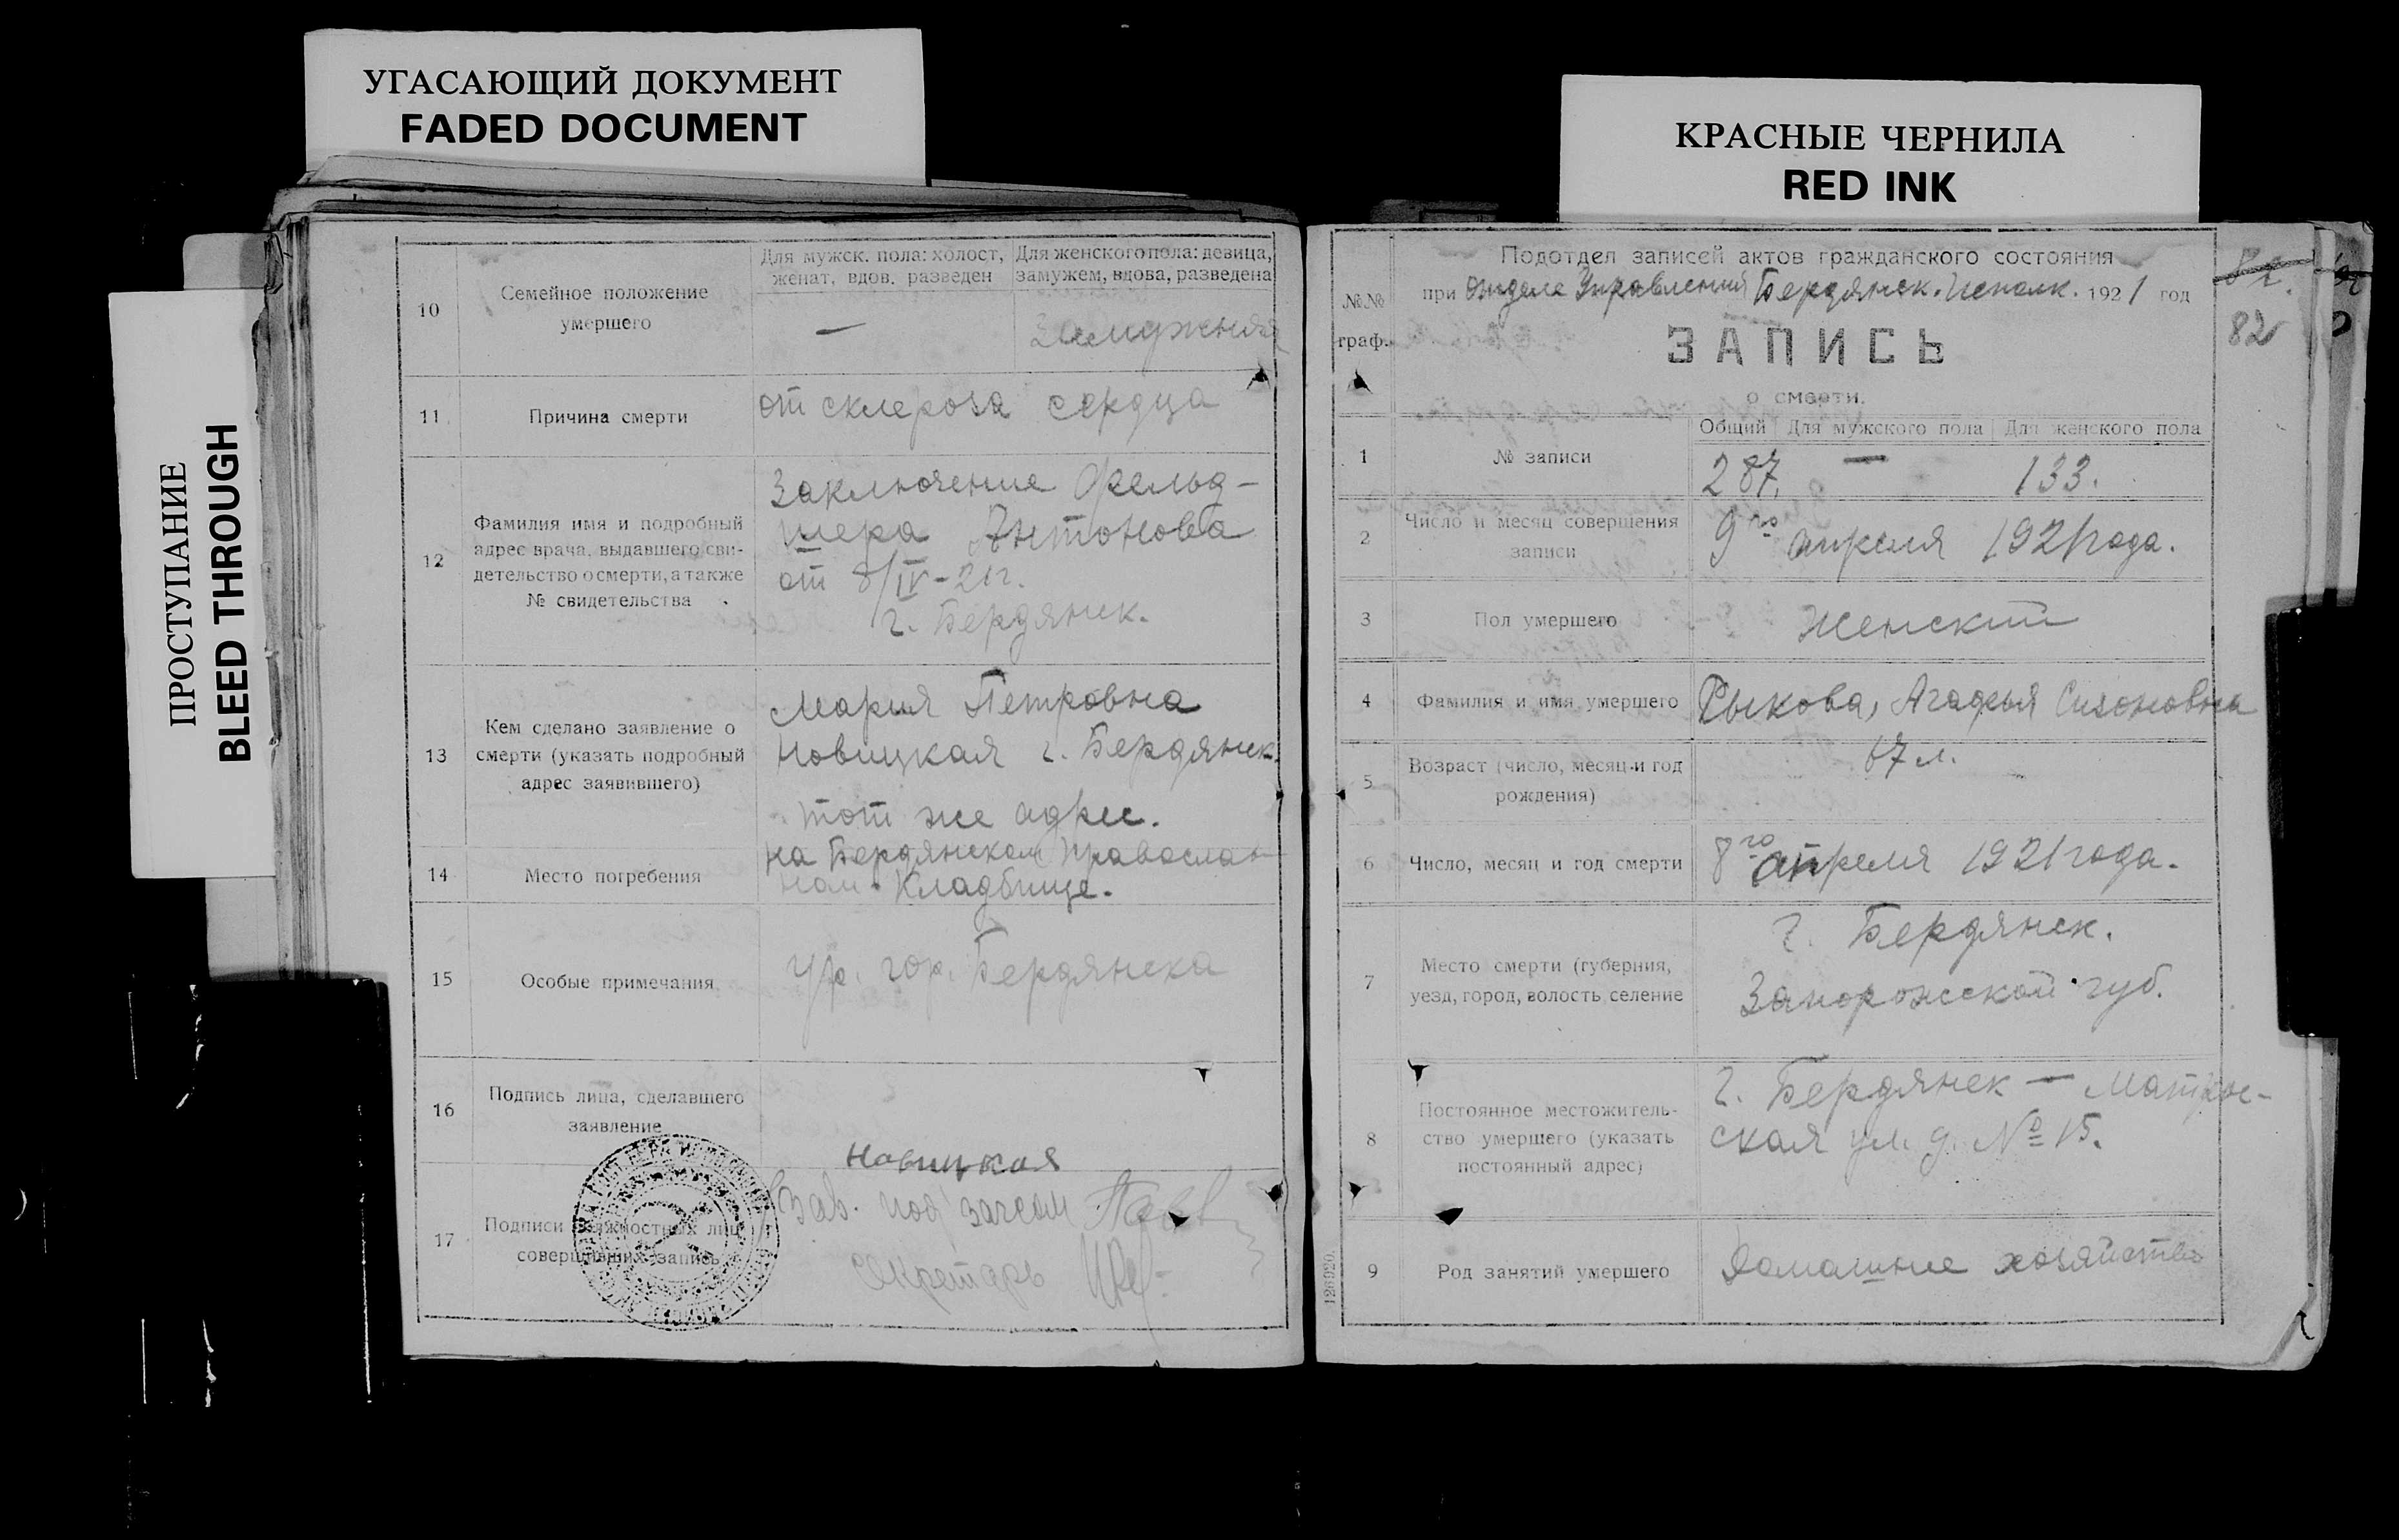 УГАСАЮЩИЙ ДОКУМЕНТ
FADED DOCUMENT
КРАСНЫЕ ЧЕРНИЛА
RED INK
ПРОСТУПАНИЕ
BLEED THROUGH
10
Семейное положение
умершего
Для мужск. пола: холост,
женат, вдов, разведен
—
Для женского пола: девица,
замужем, вдова, разведена
Замужняя
11
Причина смерти
от склероза сердца
12
Фамилия имя и подробный
адрес врача, выдавшего сви-
детельство о смерти, а также
№ свидетельства
Заключение Фельд-
шера Антонова
от 8/IV-21г.
г. Бердянск.
13
Кем сделано заявление о
смерти (указать подробный
адрес заявившего)
Мария Петровна
Новицкая г. Бердянск.
тот же адрес.
14
Место погребения
на Бердянском Православ-
ном Кладбище.
15
Особые примечания
ур. гор. Бердянска
16
Подпись лица, сделавшего
заявление
Новицкая
17
Подписи должностных лиц,
совершивших запись
Зав. под
Секретарь
№№
граф.
Подотдел записей актов гражданского состояния
при отделе Управления Бердянск. Исполк. 1921 год
82
ЗАПИСЬ
о смерти.
1
№ записи
Общий Для мужского пола Для женского пола
287. — 133.
2
Число и месяц совершения
записи
9го апреля 1921 года.
3
Пол умершего
Женский
4
Фамилия и имя умершего
Рыкова, Агафья Сизоновна
5
Возраст (число, месяц и год
рождения)
67 л.
6
Число, месяц и год смерти
8го апреля 1921 года.
7
Место смерти (губерния,
уезд, город, волость, селение
г. Бердянск.
Запорожской губ.
8
Постоянное местожитель-
ство умершего (указать
постоянный адрес)
г. Бердянск — Матрос-
ская ул. д. № 15.
9
Род занятий умершего
Домашнее хозяйство
126920.